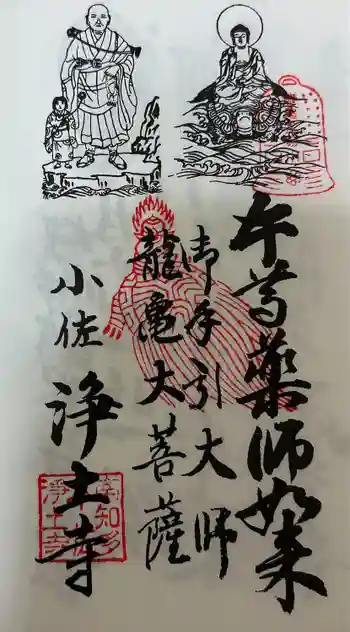 本尊薬師如来
御手引大師
龍亀大菩薩
小佐
浄土寺
南知多
浄土寺